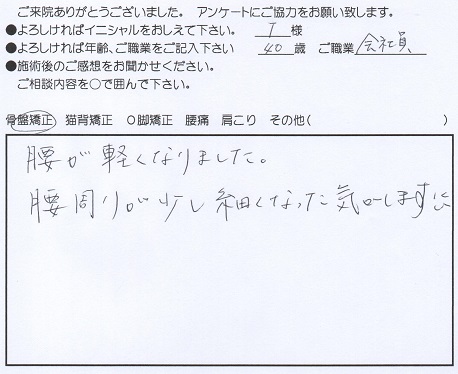 ご来院ありがとうございました。 アンケートにご協力をお願い致します。
●よろしければイニシャルをおしえて下さい。 T 様
●よろしければ年齢、ご職業をご記入下さい 40 歳 ご職業 会社員
●施術後のご感想をお聞かせください。
ご相談内容を○で囲んで下さい。
骨盤矯正 猫背矯正 O脚矯正 腰痛 肩こり その他( )
腰が軽くなりました。
腰周りが少し細くなった気がします